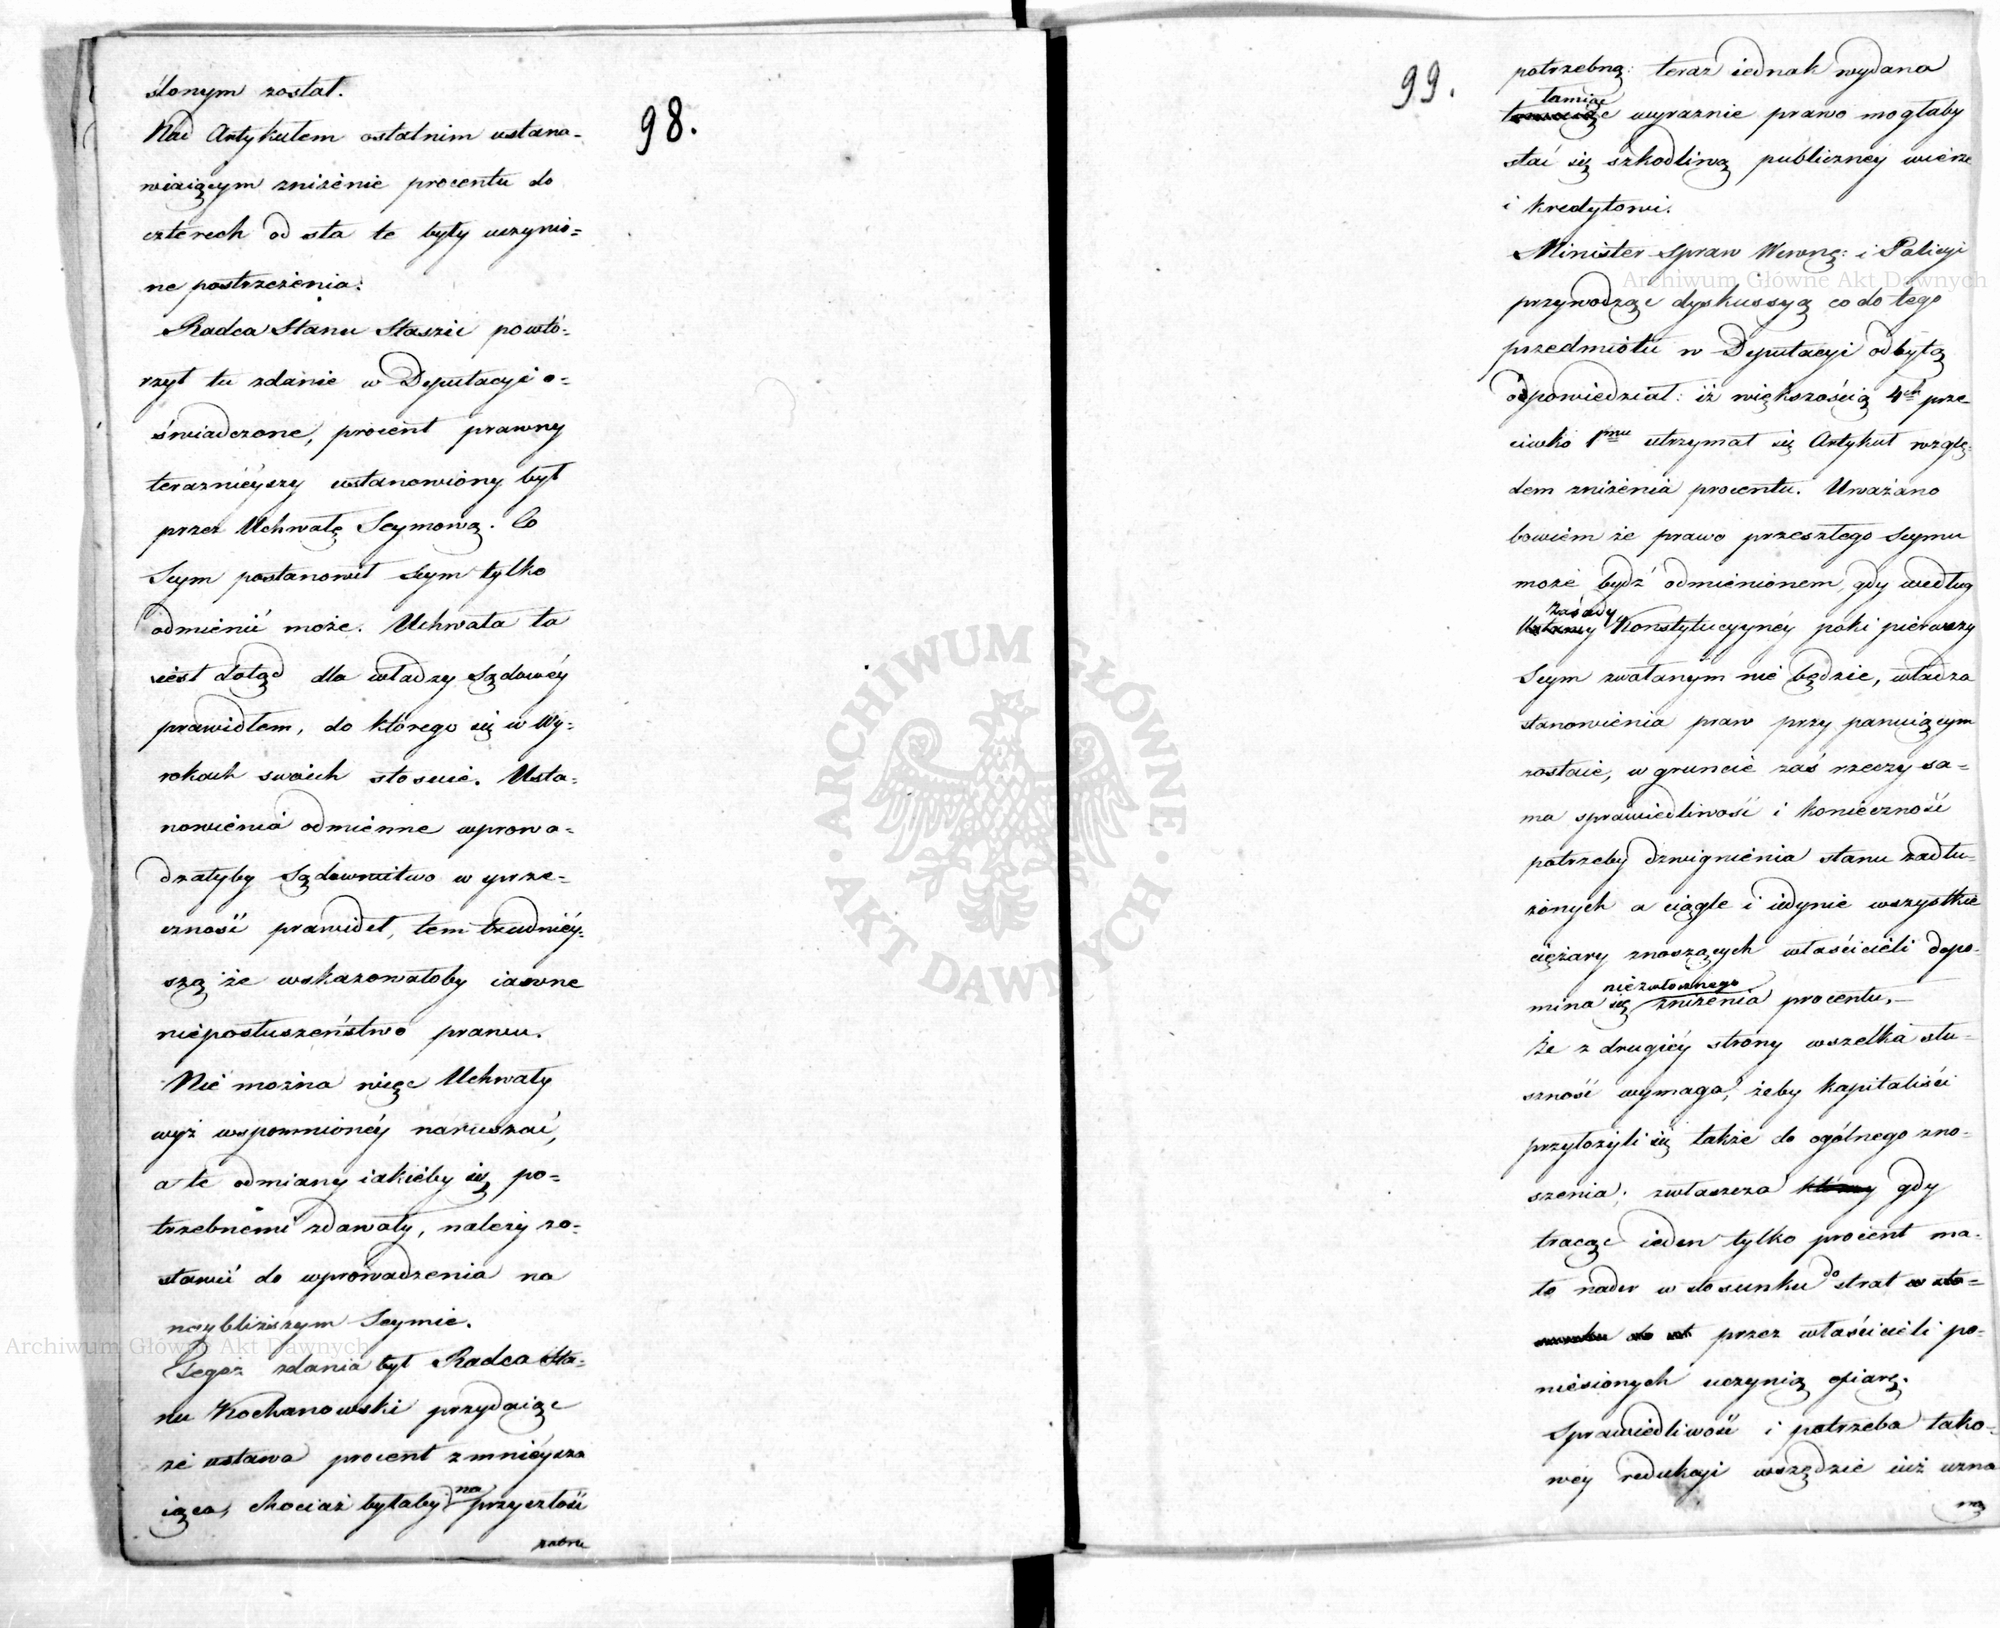 98.
ślonym został.
Nad Artykułem ostatnim ustano-
wiaiącym zniżenie procentu do
czterech od sta te były uczynio=
ne postrzeżenia:
Radca Stanu Staszic powtó=
rzył tu zdanie w Deputacyi o=
świadczone, procent prawny
teraznieyszy ustanowiony był
przez Uchwałę Seymową. Co
Seym postanowił Seym tylko
odmienić może. Uchwała ta
iest dotąd dla władzy Sądowéy
prawidłem, do którego się w Wy=
rokach swoich stosuie. Usta=
nowienia odmienne wprowa=
dzałyby Sądownictwo w sprze=
czność prawideł, tem trudniéy=
szą że wskazowałoby iawne
nieposłuszeństwo prawu.
Nie można więc Uchwały
wyż wspomnionéy naruszać,
a te odmiany iakieby się po=
trzebnemi zdawały, należy zo=
stawić do wprowadzenia na
naybliższym Seymie.
Tegoż zdania był Radca Sta=
nu Kochanowski przydaiąc
że ustawa procent zmnieysza
iąca, chociaż byłaby na przyszłość
99.
potrzebną: teraz iednak wydana
łamiąc
wyraznie prawo mogłaby
stać się szkodliwą publiczney wierze
i kredytowi.
Minister Spraw Wewnę: i Policyi
przywodząc dyskussyą co do tego
przedmiotu w Deputacyi odbytą
odpowiedział: iż większością 4ch prze
ciwko 1mu utrzymał się Artykuł wzglę=
dem zniżenia procentu. Uważano
bowiem że prawo przeszłego Seymu
może bydź odmienionem, gdy według
zasady
Konstytucyynéy poki pierwszy
Seym zwołanym nie będzie, władza
stanowienia praw przy panuiącym
zostaie, w gruncie zaś rzeczy sa=
ma sprawiedliwość i konieczność
potrzeby dzwignienia stanu zadłu=
żonych a ciągle i iedynie wszystkie
ciężary znoszących właścicieli dopo=
niezwłocznego
mina się zniżenia procentu,—
Że z drugiey strony wszelka słu=
szność wymaga, żeby kapitaliści
przyłożyli się także do ogólnego zno=
szenia, zwłaszcza który gdy
tracąc ieden tylko procent ma-
ło nader w stosunku do strat w sto=
sunku do st przez właścicieli po=
niesionych uczynią ofiarę.
Sprawiedliwość i potrzeba tako=
wey redukcyi wszędzie iuż uzna
ną
ARCHIWUM GŁÓWNE AKT DAWNYCH
Archiwum Główne Akt Dawnych
Archiwum Główne Akt Dawnych